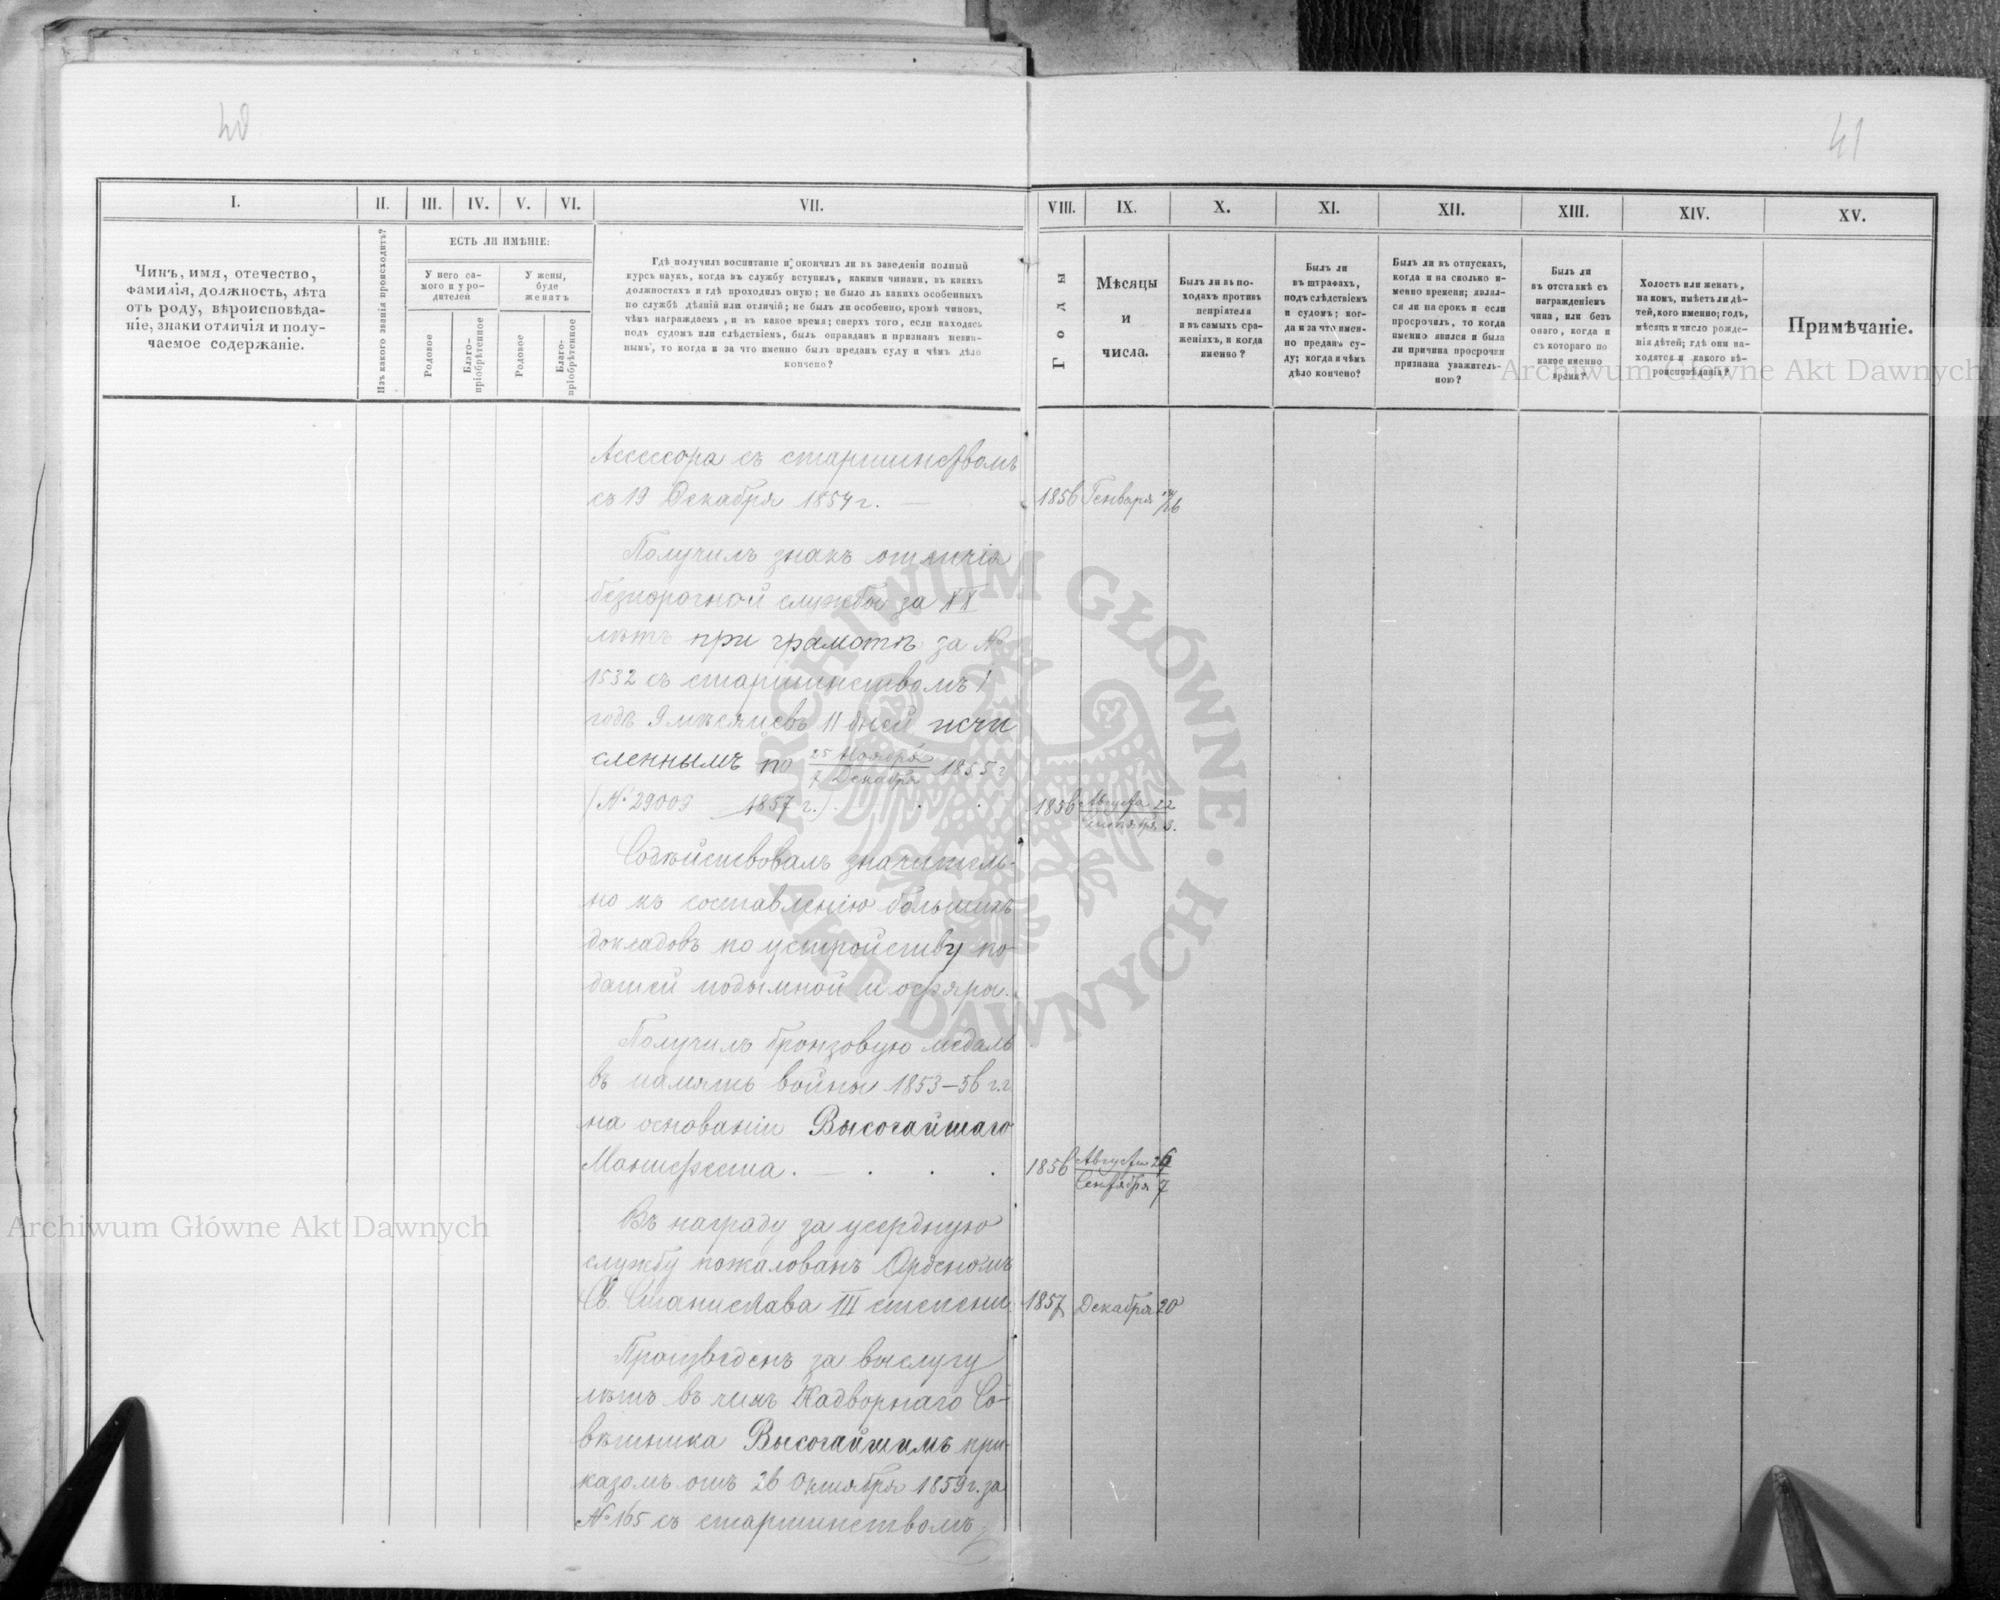 40
41
I.
II.
III.
IV.
V.
VI.
VII.
VIII.
IX.
X.
XI.
XII.
XIII.
XIV.
XV.
Чинъ, имя, отечество,
фамилія, должность, лѣта
отъ роду, вѣроисповѣда-
ніе, знаки отличія и полу-
чаемое содержаніе.
Изъ какого званія происходитъ?
ЕСТЬ ЛИ ИМѢНІЕ:
У него са-
мого и у ро-
дителей
У жены,
буде
женатъ
Родовое
Благо-
пріобрѣтенное
Родовое
Благо-
пріобрѣтенное
Гдѣ получилъ воспитаніе и окончилъ ли въ заведеніи полный
курсъ наукъ, когда въ службу вступилъ, какими чинами, въ какихъ
должностяхъ и гдѣ проходилъ оную; не было ль какихъ особенныхъ
по службѣ дѣяній или отличій; не былъ ли особенно, кромѣ чиновъ,
чѣмъ награждаемъ, и въ какое время; сверхъ того, если находясь
подъ судомъ или слѣдствіемъ, былъ оправданъ и признанъ невин-
нымъ, то когда и за что именно былъ преданъ суду и чѣмъ дѣло
кончено?
Годы
Мѣсяцы
и
числа.
Былъ ли въ по-
ходахъ противъ
непріятеля
и въ самыхъ сра-
женіяхъ, и когда
именно?
Былъ ли
въ штрафахъ,
подъ слѣдствіемъ
и судомъ; ког-
да и за что имен-
но преданъ су-
ду; когда и чѣмъ
дѣло кончено?
Былъ ли въ отпускахъ,
когда и на сколько и-
менно времени; являл-
ся ли на срокъ и если
просрочилъ, то когда
именно явился и была
ли причина просрочки
признана уважитель-
ною?
Былъ ли
въ отставкѣ съ
награжденіемъ
чина, или безъ
онаго, когда и
съ котораго по
какое именно
время?
Холостъ или женатъ,
на комъ, имѣетъ ли дѣ-
тей, кого именно; годъ,
мѣсяцъ и число рожде-
нія дѣтей; гдѣ они на-
ходятся и какого вѣ-
роисповѣданія?
Примѣчаніе.
Archiwum Główne Akt Dawnych
Асессора съ старшинствомъ
съ 19 Декабря 1854 г. —
1856 Генваря 14/26
Получилъ знакъ отличія
безпорочной службы за XX
лѣтъ при грамотѣ за №
1532 съ старшинствомъ 1
годъ 9 мѣсяцевъ 11 дней исчи
сленнымъ по 25 Ноября / 7 Декабря 1855 г
(№ 29009 1857 г.) . . .
1856 Августа 22 / Сентября 3.
Содѣйствовалъ значитель-
но къ составленію большихъ
докладовъ по устройству по-
датей подымной и офяры.
Получилъ бронзовую медаль
въ память войны 1853–56 г.г
на основаніи Высочайшаго
Манифеста . — . .
1856 Августа 26 / Сентября 7
Въ награду за усердную
службу пожалованъ Орденомъ
Св. Станислава III степени.
1857 Декабря 20
Произведенъ за выслугу
лѣтъ въ чинъ Надворнаго Со-
вѣтника Высочайшимъ при-
казомъ отъ 26 Октября 1859 г. за
№ 165 съ старшинствомъ
ARCHIWUM GŁÓWNE · AKT DAWNYCH ·
Archiwum Główne Akt Dawnych